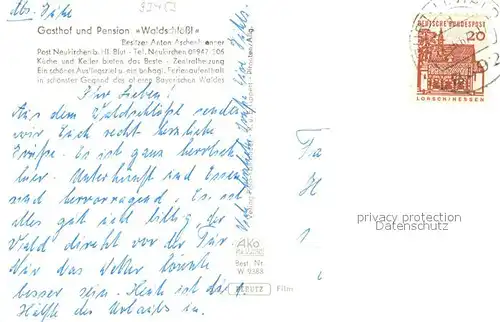 Abs. Jahre
33452
Gasthof und Pension »Waldschlößl«
Besitzer Anton Aschenbrenner
Post Neukirchen b. Hl. Blut - Tel. Neukirchen 09947 106
Küche und Keller bieten das Beste - Zentralheizung
Ein schönes Ausflugsziel u. ein behagl. Ferienaufenthalt
in schönster Gegend des oberen Bayerischen Waldes
Ihr Lieben!
Aus dem Waldschlößl senden
wir Euch recht herzliche
Grüße. Es ist ganz herrlich
hier. Unterkunft und Essen
sind hervorragend. Es ist
alles gut und billig, der
Wald direkt vor der Tür
Nur das Wetter könnte
besser sein. Heute ist die
Hälfte des Urlaubs um.
DEUTSCHE BUNDESPOST
20
LORSCH/HESSEN
Fa
H
1
privacy protection
Datenschutz
AKO
Best. Nr.
W 9388
PERUTZ Film